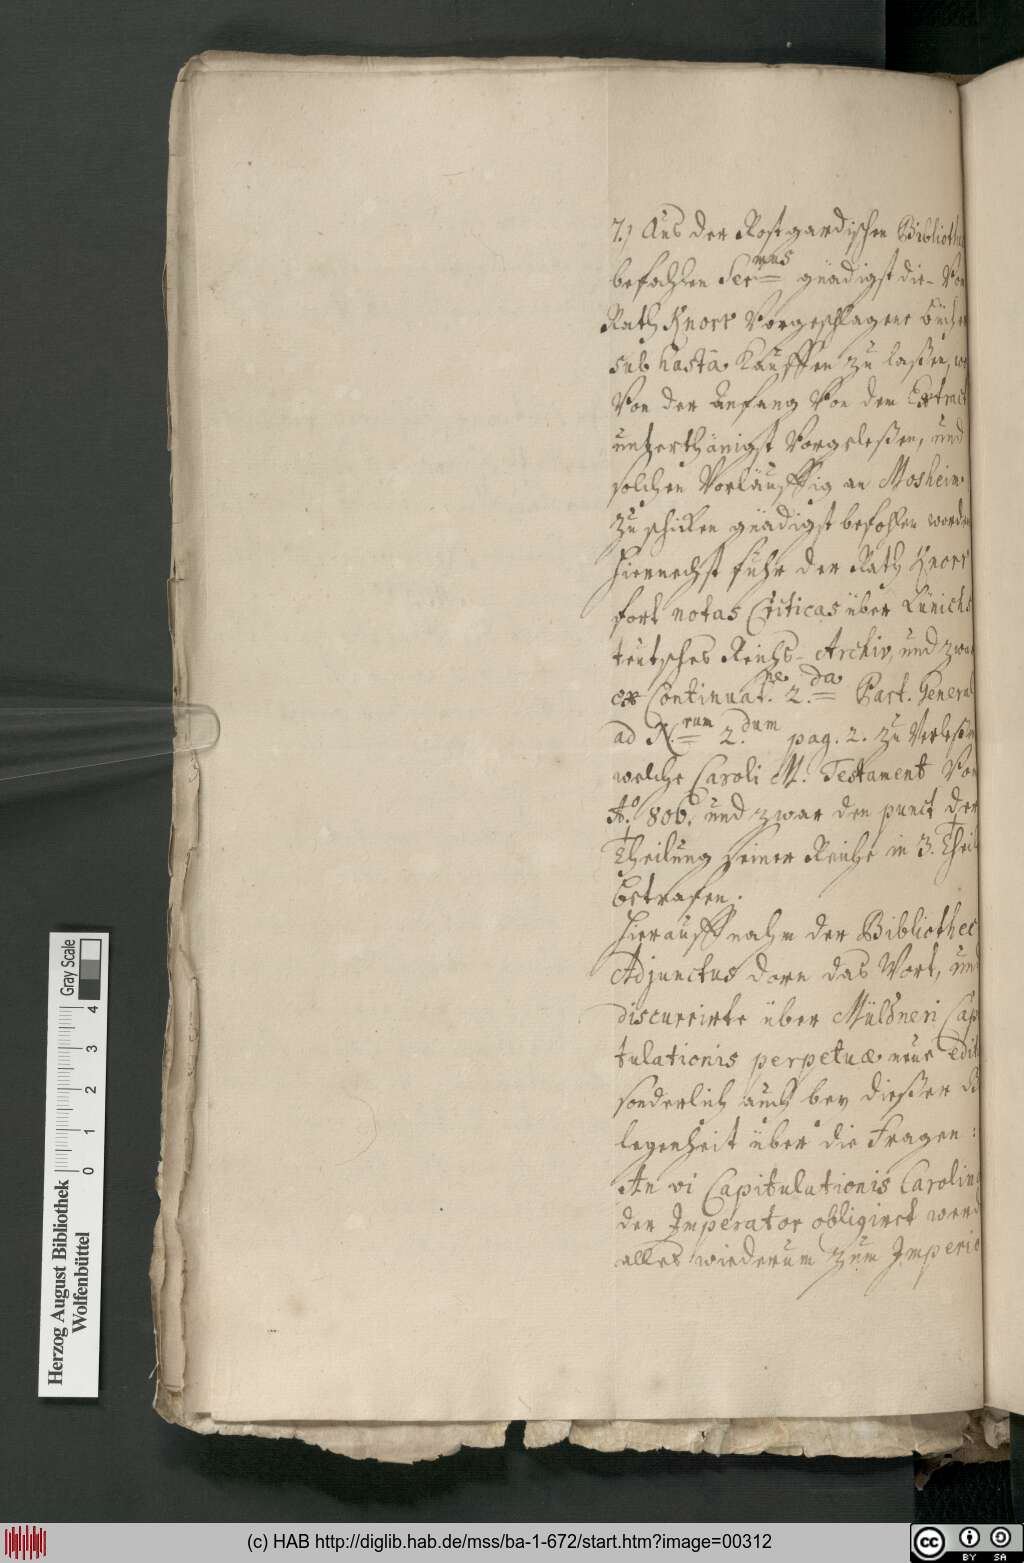 7.) Aus der Rostgardischen Biblioth
befohlen Ser.mus gnädigst die- Von
Rath Knorr Vorgeschlagene bücher
sub hasta Kauffen zu laßen,
Von der Anfang Von dem Extract
unterthänigst Vorgeleßen, und
solchen Vorläuffig an Mosheim
zu schicken gnädigst befohlen worden
Hiernechst fuhr der Rath Knorr
fort notas Criticas über Lünichs
teutsches Reichs-Archiv, und zwar
ex Continuat.ne 2.da Part. General
ad N.rum 2.dum pag. 2. zu Verleßen
welche Caroli M. Testament Von
Ao. 806. und zwar den punct der
Theilung seiner Reiche in 3. Theil
betrafen.
Hierauff nahm der Bibliothec
Adjunctus Dorn das Wort, und
discurrirte über Müldneri Cap
tulationis perpetuæ neue Edit
sonderlich auch bey dießer
legenheit über die Fragen:
An vi Capitulationis Carolin
der Imperator obligirt werd
alles wiederum zum Imperio
Herzog August Bibliothek
Wolfenbüttel
0 1 2 3 4
Gray Scale
(c) HAB http://diglib.hab.de/mss/ba-1-672/start.htm?image=00312
cc BY SA